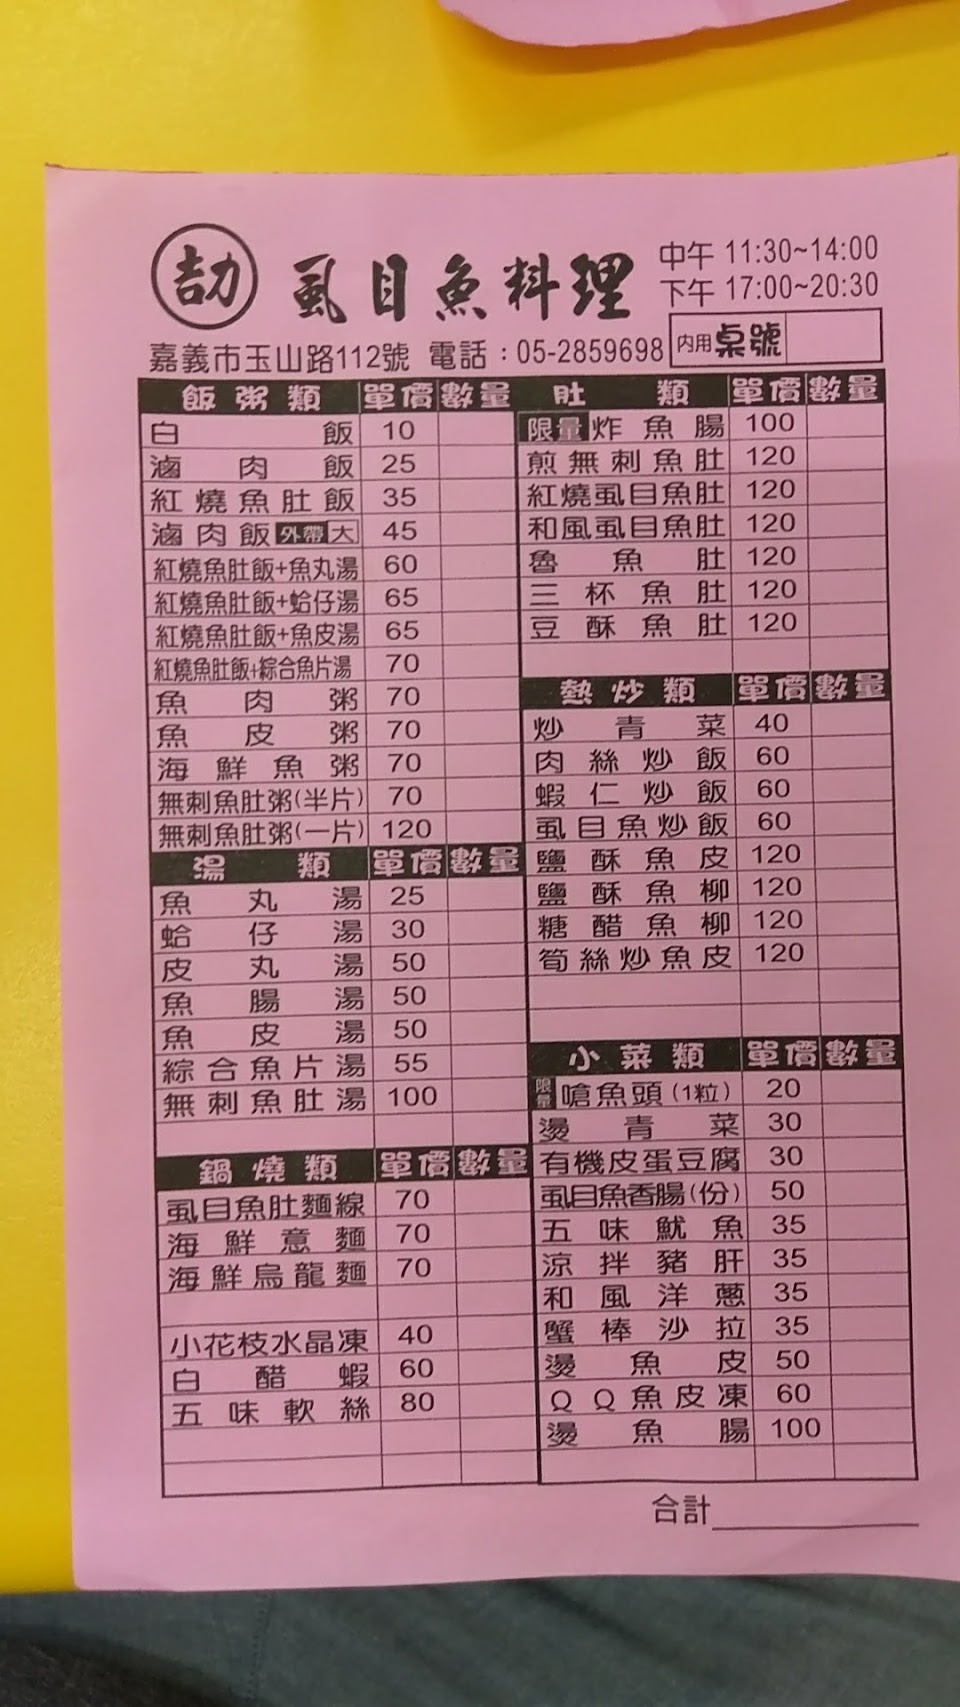 劼 虱目魚料理
中午 11:30~14:00
下午 17:00~20:30
嘉義市玉山路112號 電話：05-2859698
內用 桌號
飯粥類 單價 數量
白飯 10
滷肉飯 25
紅燒魚肚飯 35
滷肉飯 外帶 大 45
紅燒魚肚飯+魚丸湯 60
紅燒魚肚飯+蛤仔湯 65
紅燒魚肚飯+魚皮湯 65
紅燒魚肚飯+綜合魚片湯 70
魚肉粥 70
魚皮粥 70
海鮮魚粥 70
無刺魚肚粥(半片) 70
無刺魚肚粥(一片) 120
湯類 單價 數量
魚丸湯 25
蛤仔湯 30
皮丸湯 50
魚腸湯 50
魚皮湯 50
綜合魚片湯 55
無刺魚肚湯 100
鍋燒類 單價 數量
虱目魚肚麵線 70
海鮮意麵 70
海鮮烏龍麵 70
小花枝水晶凍 40
白醋蝦 60
五味軟絲 80
肚類 單價 數量
限量 炸魚腸 100
煎無刺魚肚 120
紅燒虱目魚肚 120
和風虱目魚肚 120
魯魚肚 120
三杯魚肚 120
豆酥魚肚 120
熱炒類 單價 數量
炒青菜 40
肉絲炒飯 60
蝦仁炒飯 60
虱目魚炒飯 60
鹽酥魚皮 120
鹽酥魚柳 120
糖醋魚柳 120
筍絲炒魚皮 120
小菜類 單價 數量
限量 嗆魚頭(1粒) 20
燙青菜 30
有機皮蛋豆腐 30
虱目魚香腸(份) 50
五味魷魚 35
涼拌豬肝 35
和風洋蔥 35
蟹棒沙拉 35
燙魚皮 50
QQ魚皮凍 60
燙魚腸 100
合計